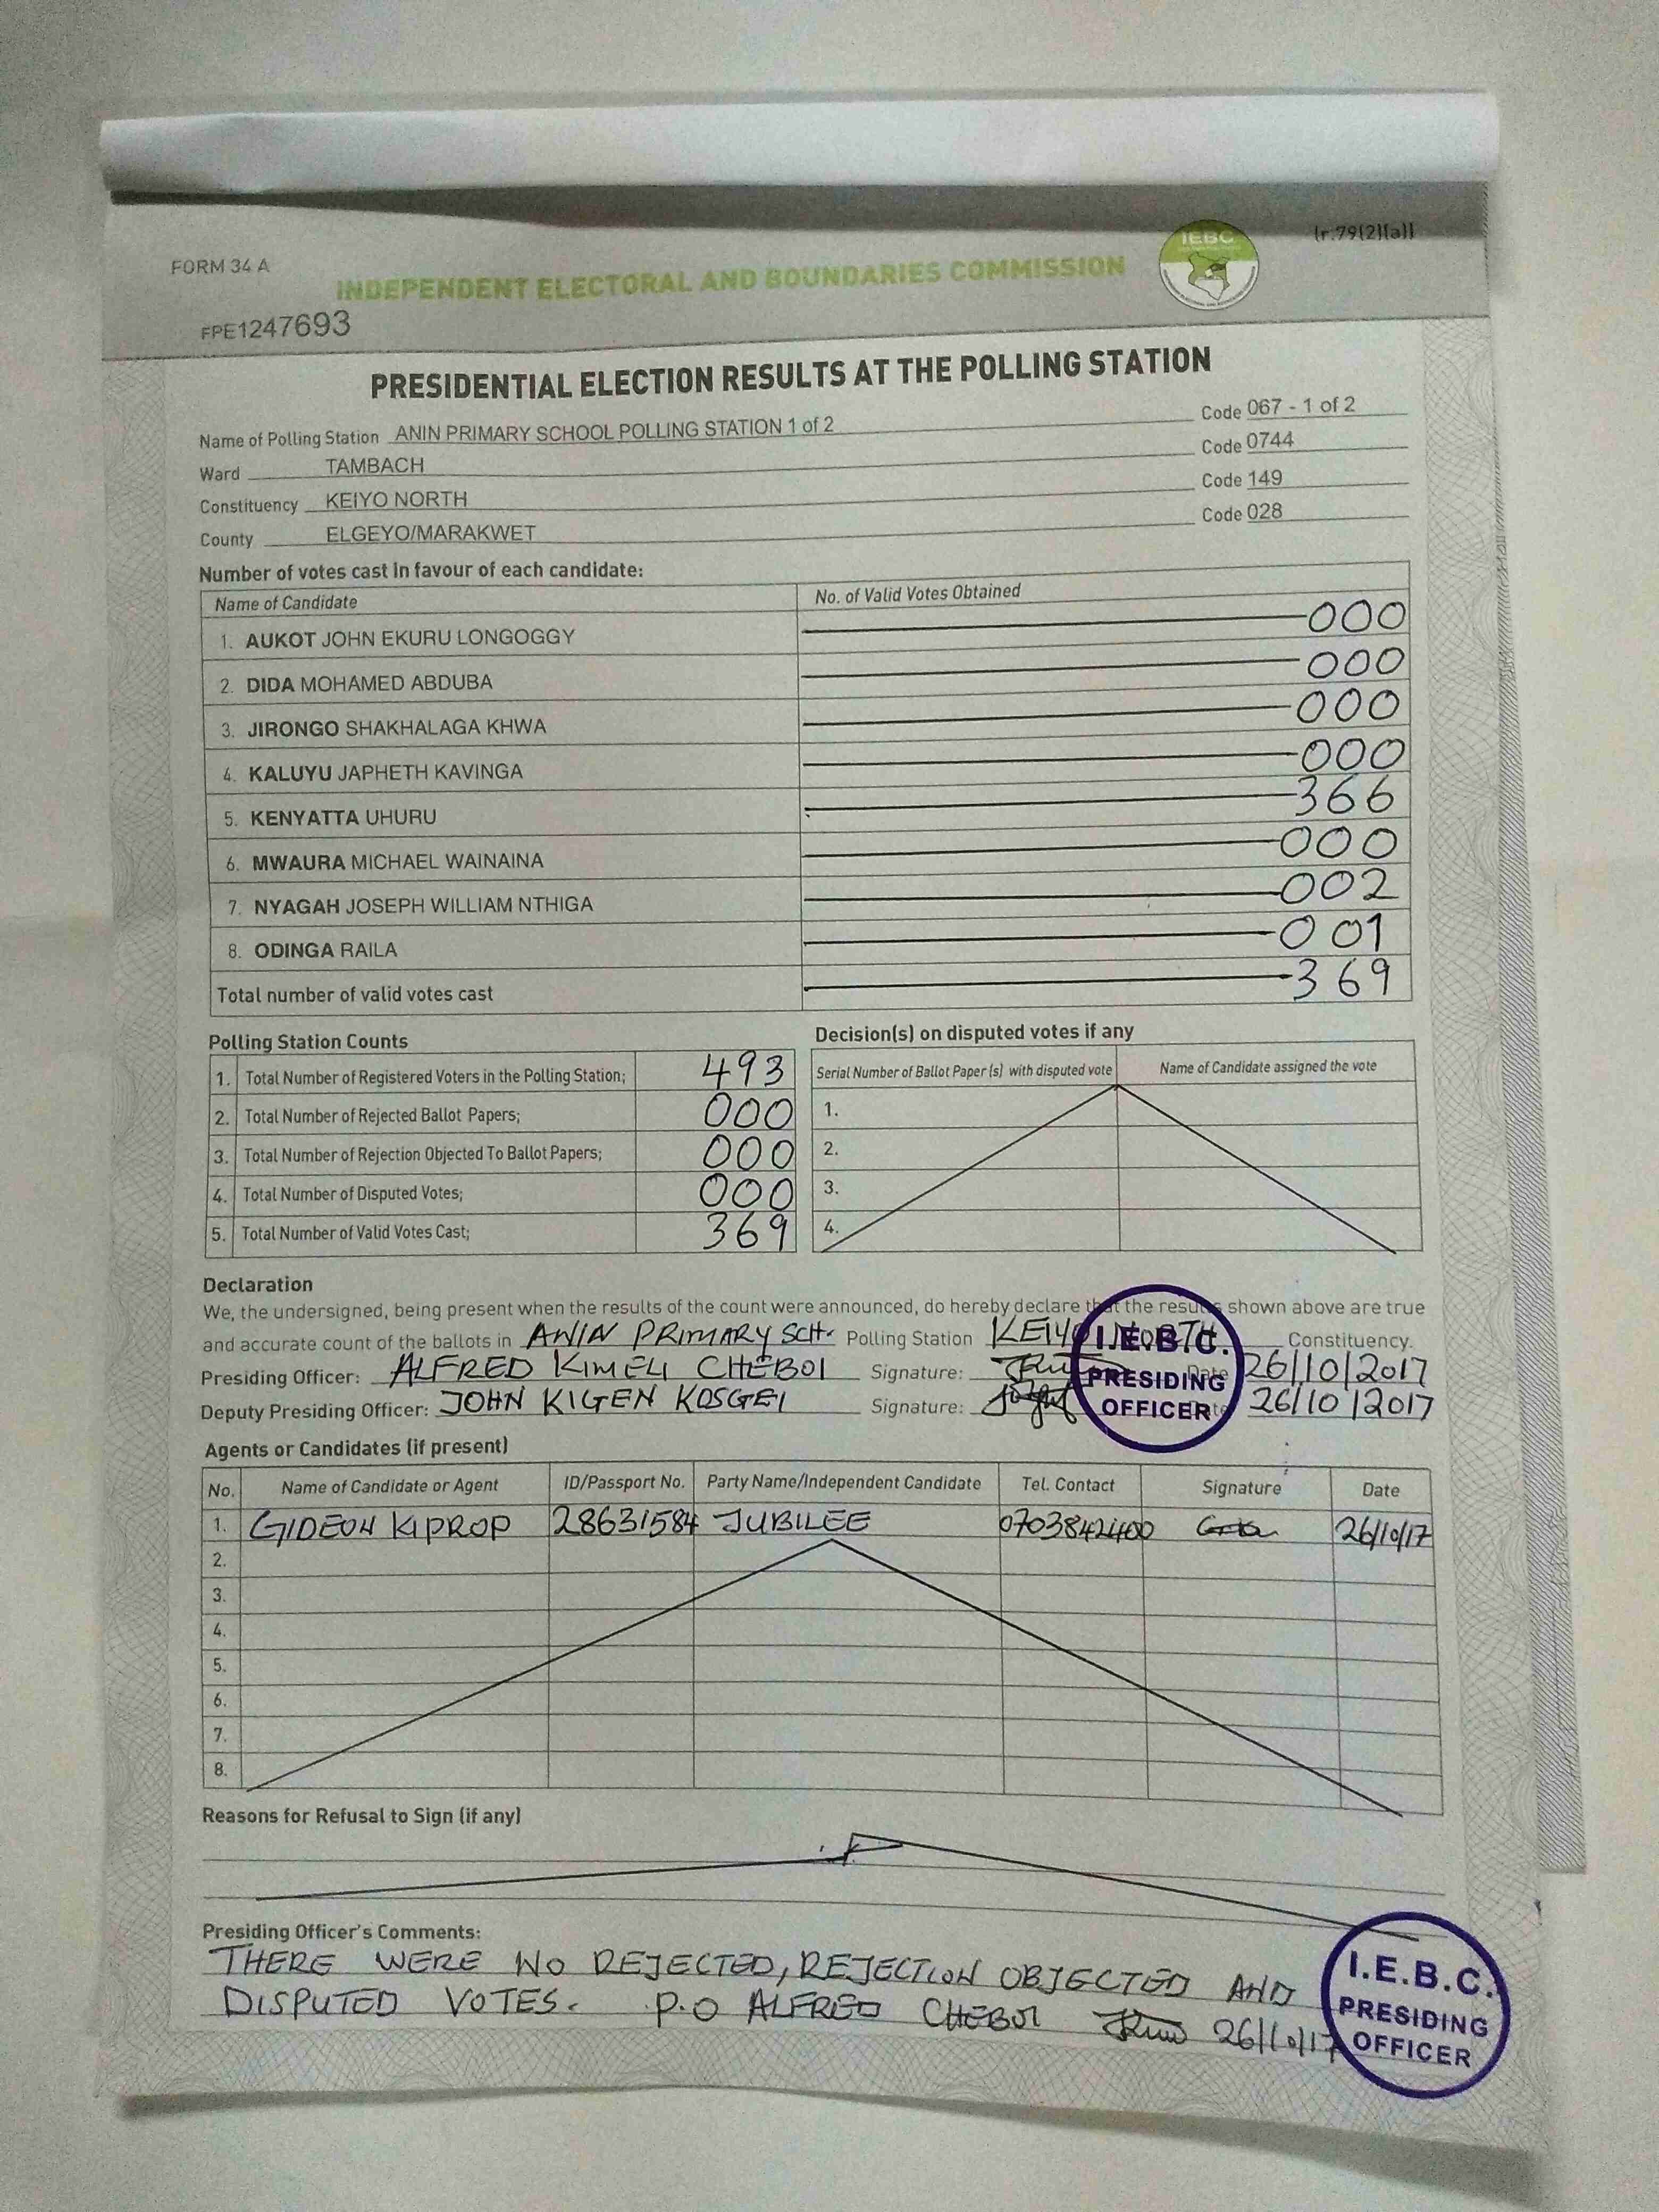 (r.79(2)(a))
IEBC
FORM 34 A
INDEPENDENT ELECTORAL AND BOUNDARIES COMMISSION
FPE1247693
PRESIDENTIAL ELECTION RESULTS AT THE POLLING STATION
Name of Polling Station ANIN PRIMARY SCHOOL POLLING STATION 1 of 2 Code 067 - 1 of 2
Ward TAMBACH Code 0744
Constituency KEIYO NORTH Code 149
County ELGEYO/MARAKWET Code 028
Number of votes cast in favour of each candidate:
Name of Candidate No. of Valid Votes Obtained
1. AUKOT JOHN EKURU LONGOGGY 000
2. DIDA MOHAMED ABDUBA 000
3. JIRONGO SHAKHALAGA KHWA 000
4. KALUYU JAPHETH KAVINGA 000
5. KENYATTA UHURU 366
6. MWAURA MICHAEL WAINAINA 000
7. NYAGAH JOSEPH WILLIAM NTHIGA 002
8. ODINGA RAILA 001
Total number of valid votes cast 369
Polling Station Counts
1. Total Number of Registered Voters in the Polling Station; 493
2. Total Number of Rejected Ballot Papers; 000
3. Total Number of Rejection Objected To Ballot Papers; 000
4. Total Number of Disputed Votes; 000
5. Total Number of Valid Votes Cast; 369
Decision(s) on disputed votes if any
Serial Number of Ballot Paper (s) with disputed vote Name of Candidate assigned the vote
1.
2.
3.
4.
Declaration
We, the undersigned, being present when the results of the count were announced, do hereby declare that the results shown above are true
and accurate count of the ballots in ANIN PRIMARY SCH. Polling Station KEIYO NORTH Constituency.
Presiding Officer: ALFRED KIMELI CHEBOI Signature: Date 26/10/2017
Deputy Presiding Officer: JOHN KIGEN KOSGEI Signature: Date 26/10/2017
I.E.B.C.
PRESIDING
OFFICER
Agents or Candidates (if present)
No. Name of Candidate or Agent ID/Passport No. Party Name/Independent Candidate Tel. Contact Signature Date
1. GIDEON KIPROP 28631584 JUBILEE 0703842400 26/10/17
2.
3.
4.
5.
6.
7.
8.
Reasons for Refusal to Sign (if any)
Presiding Officer's Comments:
THERE WERE NO REJECTED, REJECTION OBJECTED AND
DISPUTED VOTES. P.O ALFRED CHEBOI 26/10/17
I.E.B.C.
PRESIDING
OFFICER